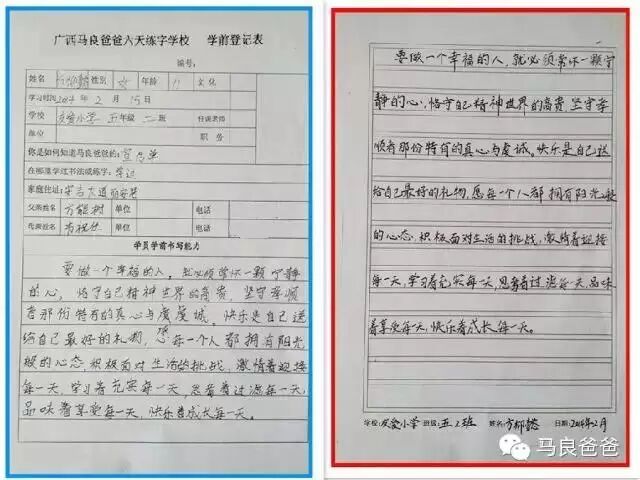 广西马良爸爸六天练字学校 学前登记表
编号:
姓名 性别 女 年龄 11 文化
学习时间2014年2月15日
学校 友爱小学 五年级二班 任课老师
单位 职务
你是如何知道马良爸爸的: 宣传单
在哪里学过书法或练字: 学过
家庭住址:
父亲姓名 单位 电话
母亲姓名 单位 电话
学员学前书写能力
要做一个幸福的人。就必须常怀一颗宁静
的心,恪守自己精神世界的高贵,坚守孝顺
者那份特有的真心与虔诚。快乐是自己送
给自己最好的礼物,愿每一个人都拥有阳光
般的心态,积极面对生活的挑战,激情着迎接
每一天,学习着充实每一天,思考着过滤每一天,
品味着享受每一天,快乐着成长每一天。
要做一个幸福的人,就必须常怀一颗宁
静的心,恪守自己精神世界的高贵,坚守孝
顺者那份特有的真心与虔诚。快乐是自己送
给自己最好的礼物,愿每一个人都拥有阳光般
的心态,积极面对生活的挑战,激情着迎接
每一天,学习着充实每一天,思考着过滤每一天,品味
着享受每一天,快乐着成长每一天。
学校:友爱小学 班级:五.2班 姓名: 日期:2014年2月
马良爸爸